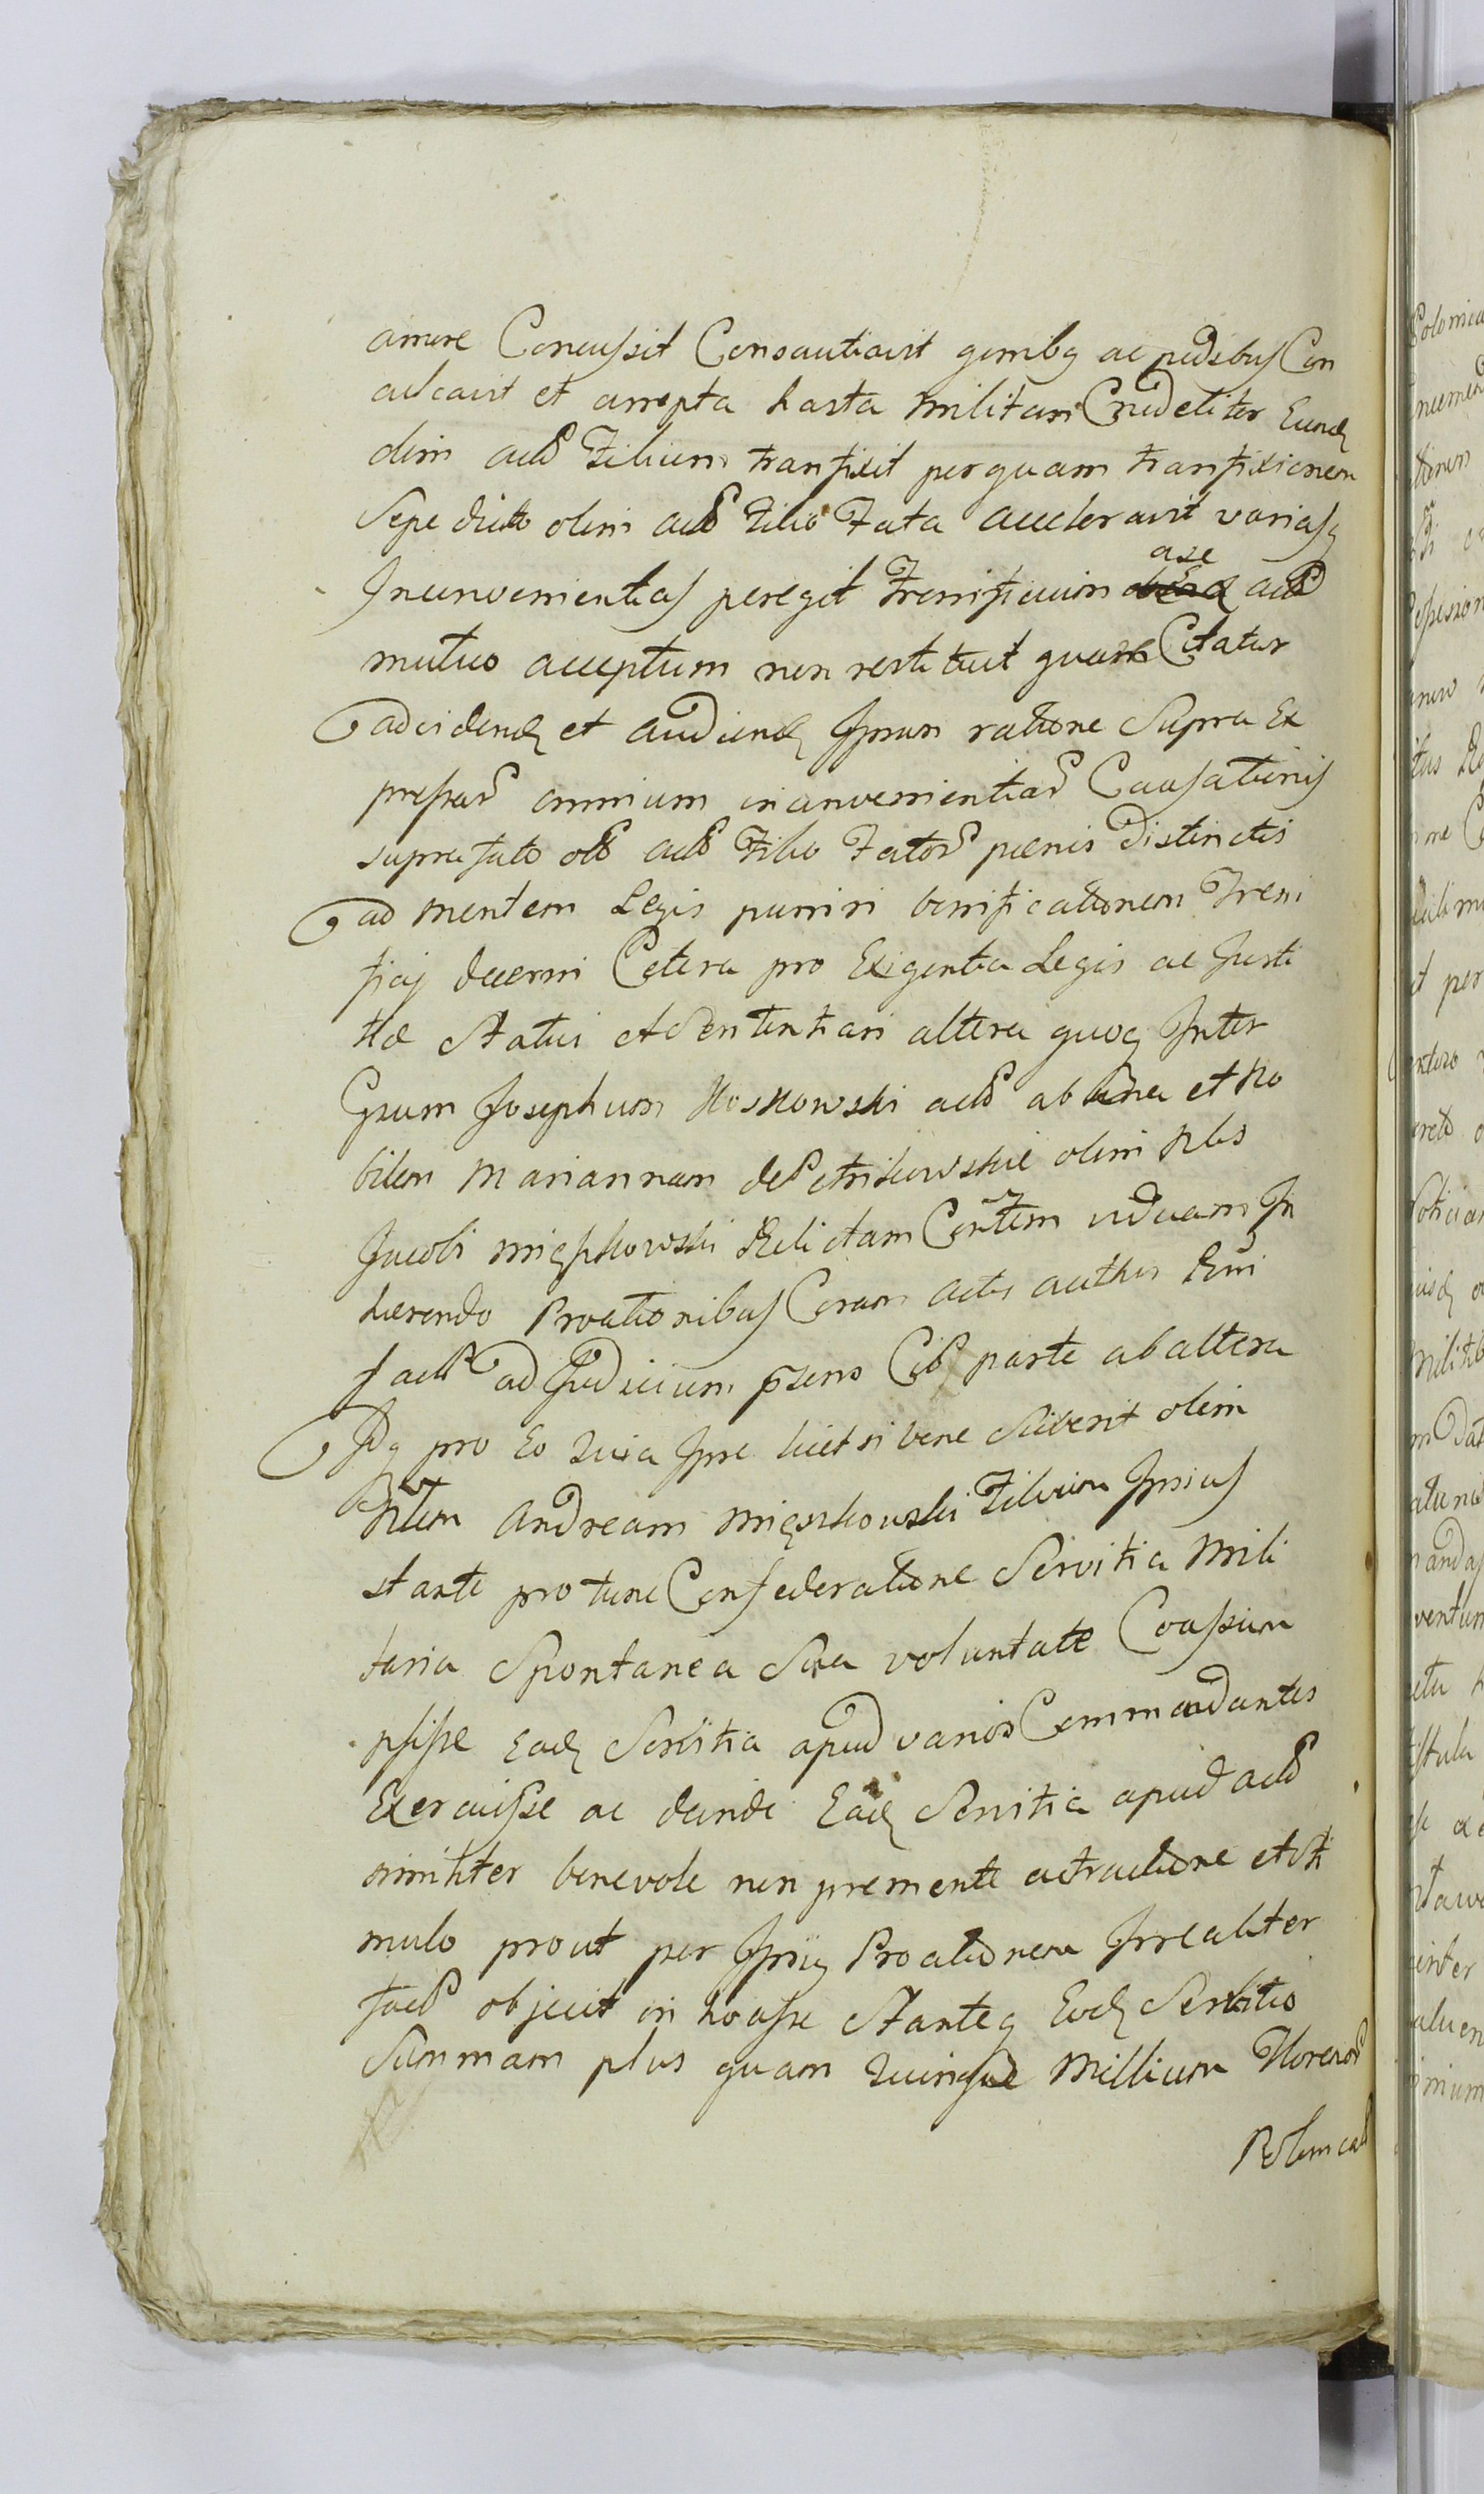 amore Concussit Consauciavit genibq ac pedibus Con
culcavit et arrepta hasta militari Crudeliter Eund
olim actr Filium transfixit per quam transfixionem
Sepe dicto olim actr Filio Fata acceleravit variasq
Inconvenientias peregit Frenificium ase actr
mutuo acceptum non restituit quare Citatur
ad vidend et audiend Ipsum ratione Supra Ex
pressar omnium inconvenientiar Causationis
suprafato ol actr Filio Fator penis Distinctis
ad mentem Legis puniri bonificationem Freni
ficij decerni Cetera pro Exigentia Legis ac Justi
tiae Statui et Sententiari altera quoq Inter
Gsum Josephum Noskowski actr ab una et No
bilem Mariannam de Petrikowskie olim Nlis
Jacobi Mięszkowski Relictam Contem viduam In
herendo Proationibus Coram actis authen
fact ad Judicium psens Cit parte ab altera
Idq pro Eo quia Ipse licet si bene Sciverit olim
Nlem Andream Mięszkowski Filium Ipsius
stante pro tunc Confederatione Servitia Mili
taria Spontanea Sua voluntate Coassum
psisse Ead Servitia apud varios Commendantes
Exercuisse ac deinde Ead Servitia apud actr
similiter benevole non premente attractione et sti
mulo prout per Ipsig Proationem Irrealiter
fact objecit in hoasse Stanteq Eod Servitio
Summam plus quam Quinque Millium Florenor
Polonical